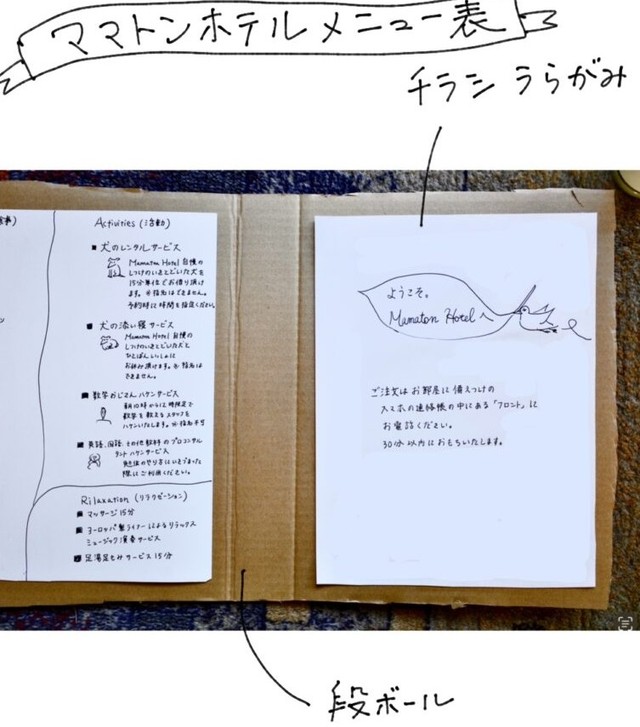 ママトンホテルメニュー表
チラシ うらがみ
Activities (活動)
■ 犬のレンタルサービス
Mamaton Hotel 自慢の
しつけのいきとどいた犬を
15分単位でお借り頂け
ます。※指名はできません。
予約時に時間を指定ください。
■ 犬の添い寝サービス
Mamaton Hotel 自慢の
しつけのいきとどいた犬と
ひとばんいっしょに
お休み頂けます。※指名は
できません。
■ 数学おじさんハケンサービス
朝10時から 時限定で
数学を教えるスタッフを
ハケンいたします。※指名不可
■ 英語、国語、その他教科のプロコンサル
タントハケンサービス
勉強のやり方にいきづまった
際にご利用ください。
Rilaxation (リラクゼーション)
■ マッサージ 15分
■ ヨーロッパ製ライアーによるリラックス
ミュージック演奏サービス
■ 足湯足もみサービス 15分
ようこそ。
Mamaton Hotel へ
ご注文はお部屋に備えつけの
スマホの連絡帳の中にある「フロント」に
お電話ください。
30分以内におもちいたします。
段ボール